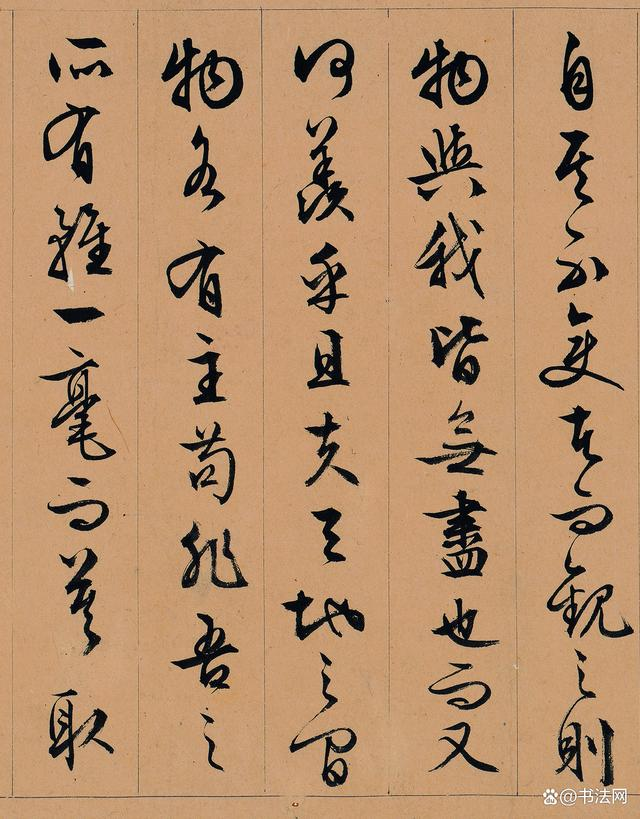 自其不變者而觀之則
物與我皆無盡也而又
何羨乎且夫天地之間
物各有主苟非吾之
所有雖一毫而莫取
@书法网